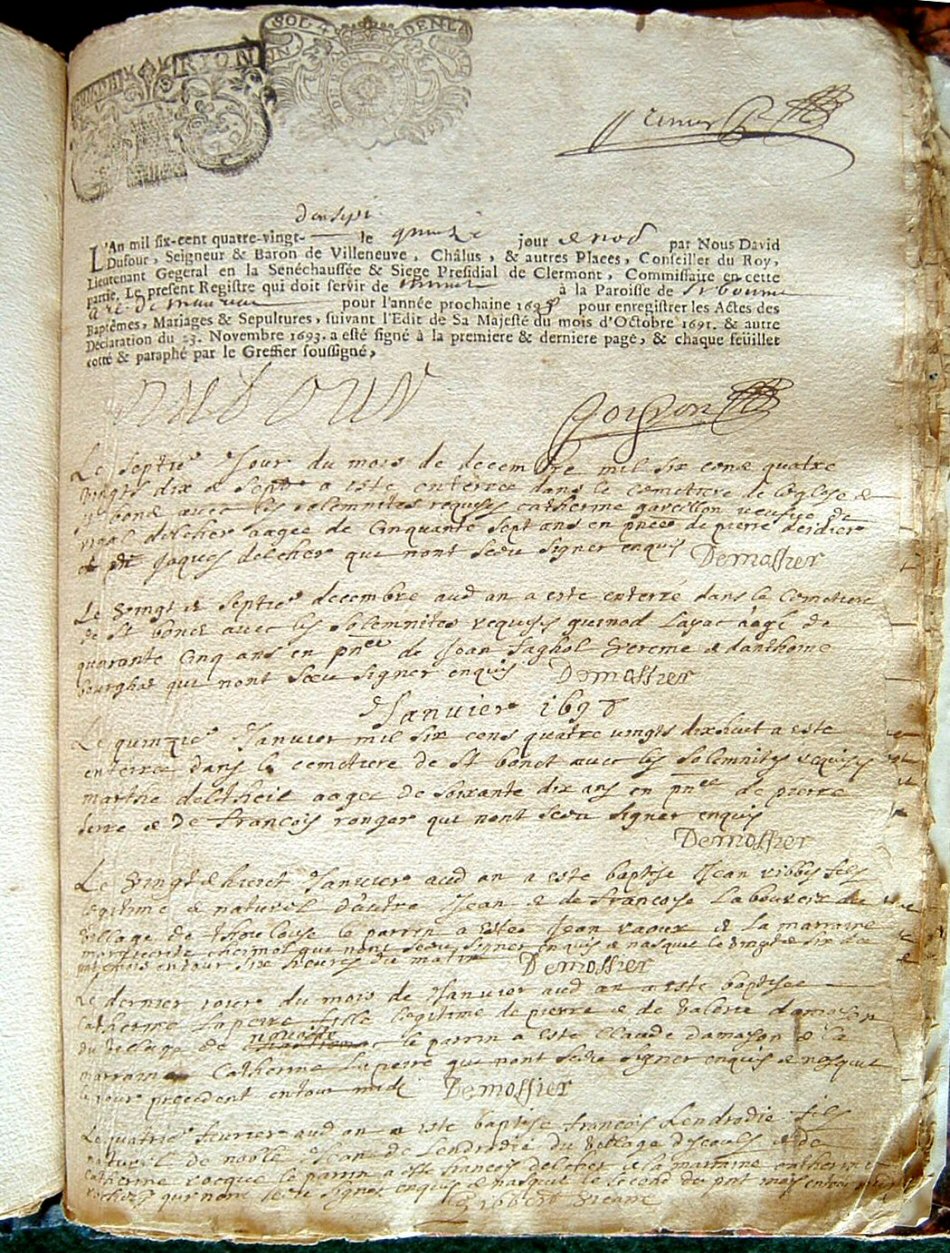 RYON
SOL 4 DEN LA
L'An mil six-cent quatre-vingt- dixsept le quinze jour de nov par Nous David
Dufour, Seigneur & Baron de Villeneuve, Châlus, & autres Places, Conseiller du Roy,
Lieutenant Gegeral en la Senéchaussée & Siege Presidial de Clermont, Commissaire en cette
partie. Le present Registre qui doit servir de minute à la Paroisse de St bonnet
pour l'année prochaine 1698 pour enregistrer les Actes des
Baptêmes, Mariages & Sepultures, suivant l'Edit de Sa Majesté du mois d'Octobre 1691. & autre
Déclaration du 23. Novembre 1693. a esté signé à la premiere & derniere page, & chaque feüillet
cotté & paraphé par le Greffier soussigné,
DUFOUR
Le septie Jour du mois de decembre mil six cens quatre
vingts dix & sept a este enterree dans le cemetiere de leglise de
St bonet avec les solemnites requises catherine gavellon veufve de
vidal delcher aagee de Cinquante sept ans en pnce de pierre deidier
et Jaques delcher qui nont sceu signer enquis Demossier
Le vingt & septie decembre aud an a este enterre dans le Cemetiere
de St bonet avec les solemnites requises guinod Layac aagé de
quarante Cinq ans en pnce de Jean saghol & danthoine
bourghat qui nont sceu signer enquis Demossier
Janvier 1698
Le quinzie Janvier mil six cens quatre vingts dixhuict a este
enterree dans le cemetiere de St bonet avec les solemnites requises
marthe deltheil aagee de soixante dix ans en pnce de pierre
serre & de francois ronger qui nont sceu signer enquis
Demossier
Le vingt & huict Janvier aud an a este baptise Jean ribbes fils
legitime & naturel dautre Jean & de francoise Labouries du
village de thoulouse le parrin a este Jean raoux & la marraine
marguerite qui nont sceu signer enquis & nasquit le vingt & six du
mois entour six heures du matin Demossier
Le dernier jour du mois de Janvier aud an a este baptisee
catherine Lapeire fille legitime de pierre & de valerie damaison
du village de le parrin a este Claude damaison & la
marraine Catherine Lapeire qui nont sceu signer enquis & nasquit
le jour precedent entour midi Demossier
Le quatrie fevrier aud an a este baptise francois Lendrodie fils
naturel de noble Jean de Lendrodie du village descouls & de
catherine rocque le parrin a este francois delcher & la marraine catherine
qui nont sceu signer enquis & nasquit le second du pnt mois entour